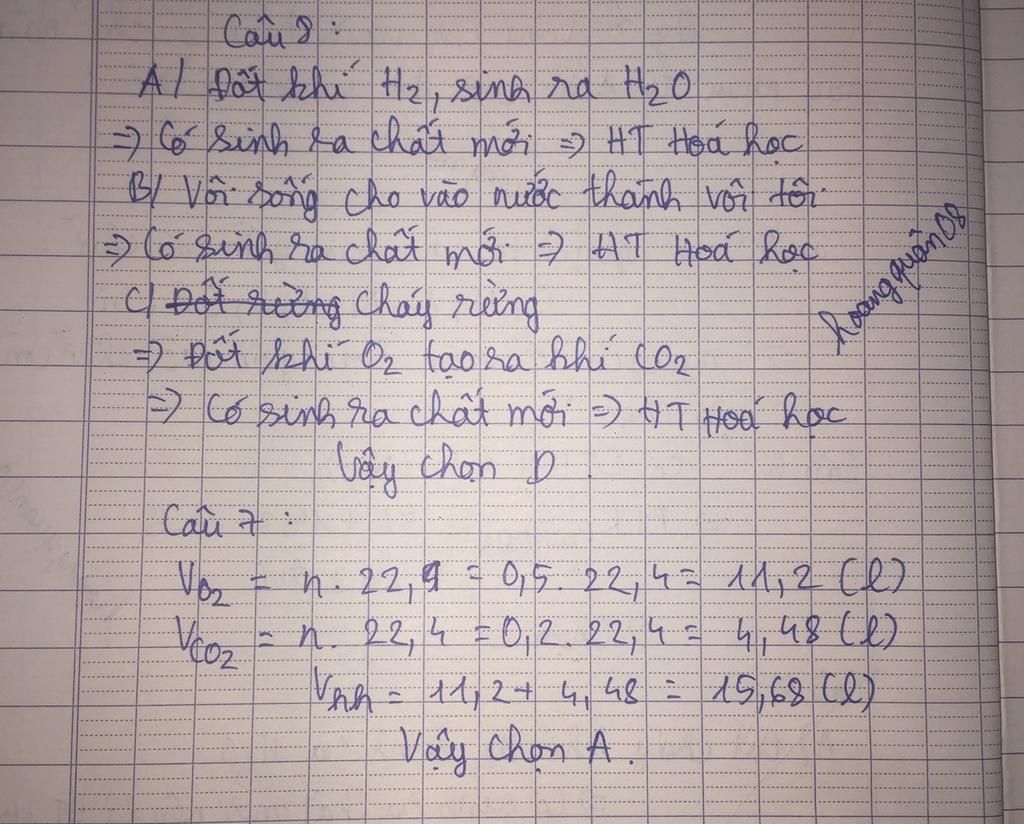 Câu 8:
A/ Đốt khí H₂, sinh ra H₂O
=> Có sinh ra chất mới => HT Hoá học
B/ Vôi sống cho vào nước thành vôi tôi
=> Có sinh ra chất mới => HT Hoá học
C/ Đốt rừng Cháy rừng
=> Đốt khí O₂ tạo ra khí CO₂
=> Có sinh ra chất mới => HT Hoá học
Vậy chọn D.
hoangquân08
Câu 7:
V_O₂ = n. 22,4 = 0,5. 22,4 = 11,2 (l)
V_CO₂ = n. 22,4 = 0,2. 22,4 = 4,48 (l)
V_hh = 11,2 + 4,48 = 15,68 (l)
Vậy chọn A.